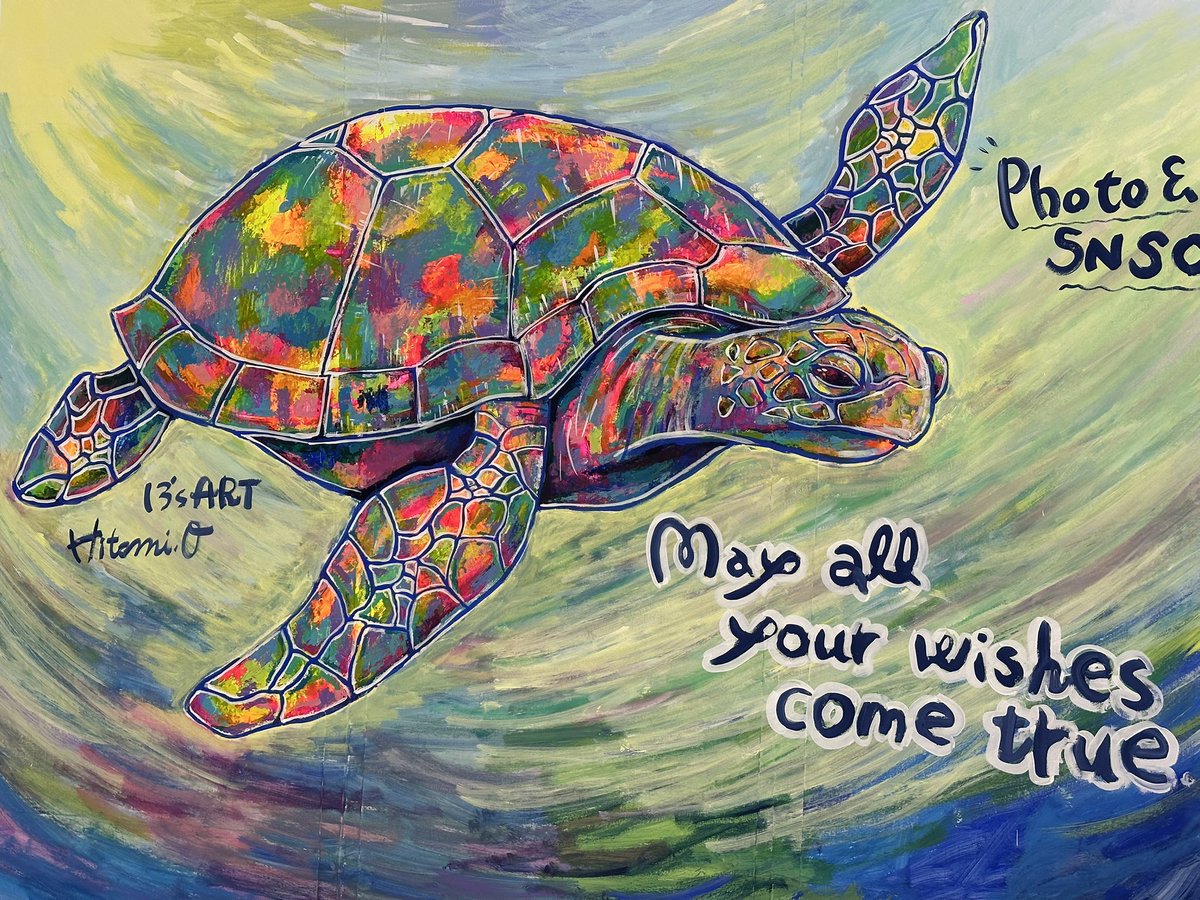 Photo &
SNS O
13'sART
Hitomi.O
May all
your wishes
come true.